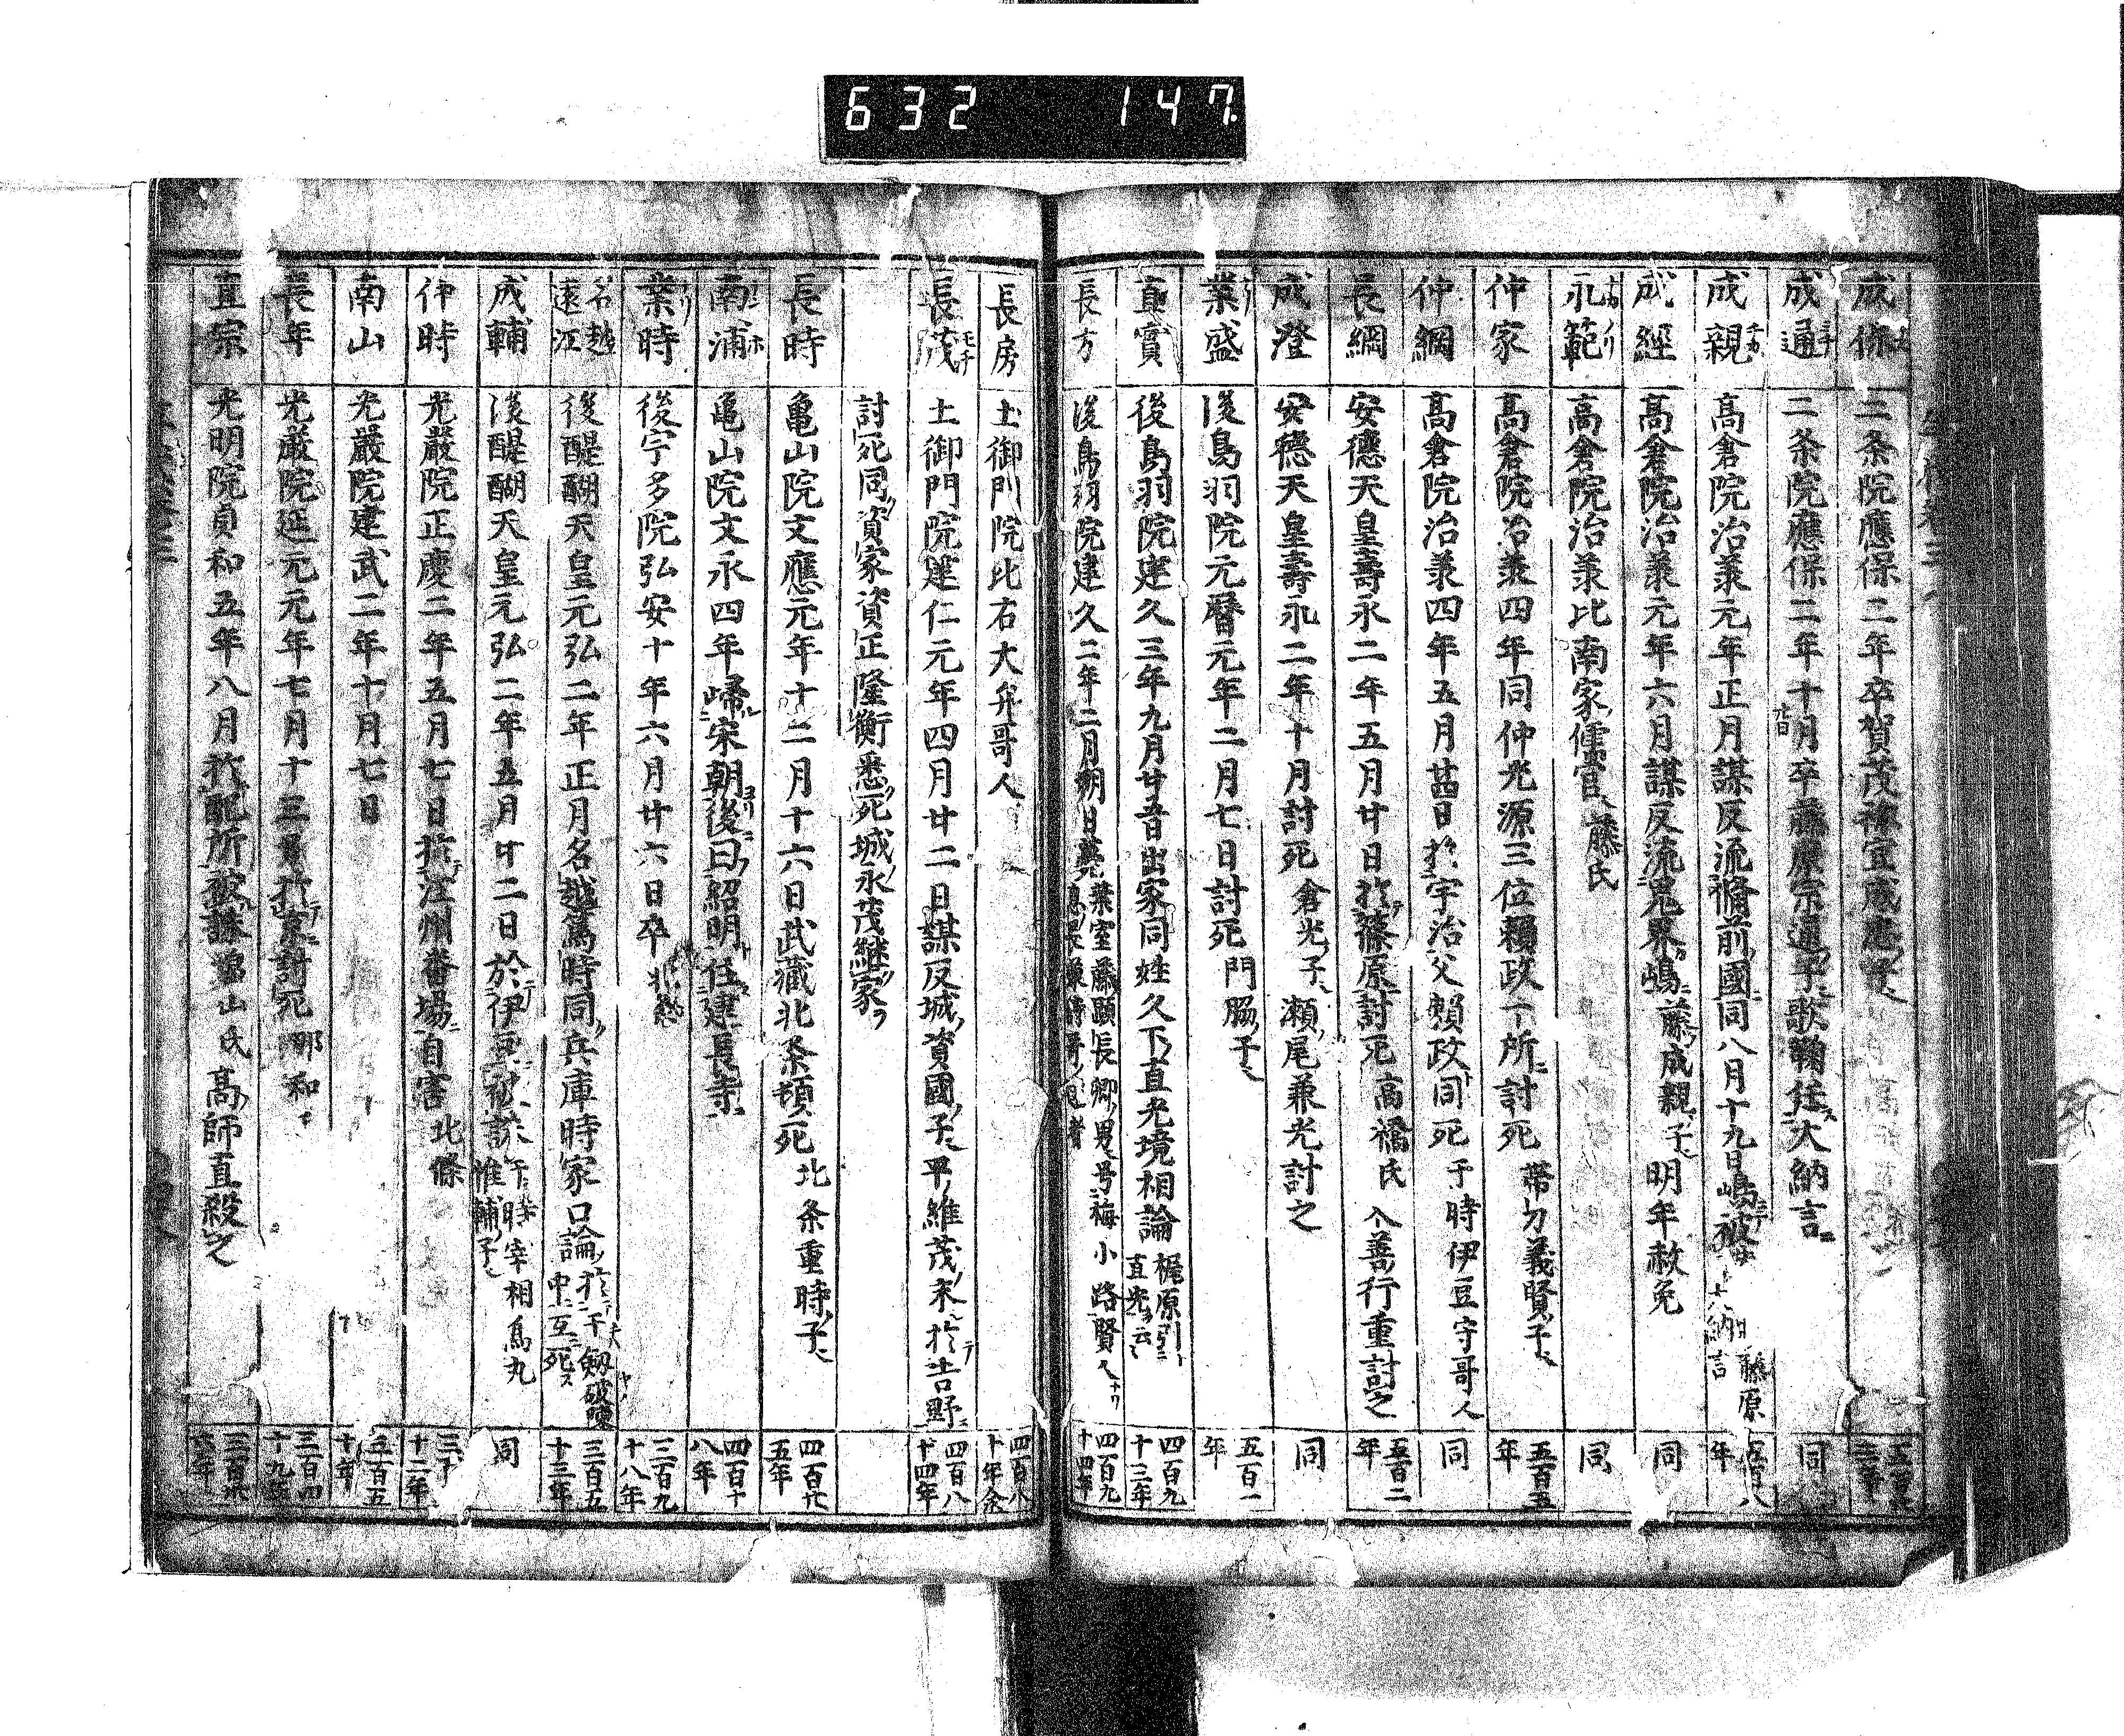 632 147
成保 二条院應保二年卒賀茂祢宜成子
成通 二条院應保二年十月卒藤原宗通子歌鞠任大納言 同
成親 高倉院治承元年正月謀反流備前國同八月十九日嶋被 藤原 年
成經 高倉院治承元年六月謀反流鬼界嶋藤成親子明年赦免 同
永範 高倉院治承比南家儒官藤氏 同
仲家 高倉院治承四年同仲光源三位頼政一所討死帯刀義賢子 五百五年
仲綱 高倉院治承四年五月廿四日於宇治父頼政同死于時伊豆守哥人 同
長綱 安德天皇壽永二年五月廿日於篠原討死高橋氏入善行重討之 五百二年
成澄 安德天皇壽永二年十月討死倉光子瀬尾兼光討之 同
業盛 後鳥羽院元曆元年二月七日討死門脇子 五百一年
直實 後鳥羽院建久三年九月廿五日出家同姓久下直光境相論 梶原引直光云 四百九十三年
長方 後鳥羽院建久二年二月朔日薨 葉室藤顕長卿男号梅小路賢人 四百九十四年
長房 土御門院比右大弁哥人 四百八十年余
長茂 土御門院建仁元年四月廿二日謀反城資國子平維茂末於吉野 四百八十四年
討死同資家資正隆衡悉死城永茂継家
長時 亀山院文應元年十二月十六日武藏北条頓死 北条重時子 四百廿五年
南浦 亀山院文永四年帰宋朝後曰紹明住建長寺 四百十八年
業時 後宇多院弘安十年六月廿六日卒 三百九十八年
名越遠江 後醍醐天皇元弘二年正月名越篤時同兵庫時家口論於千剱破陳中互死 三百五十三年
成輔 後醍醐天皇元弘二年五月廿二日於伊豆被誅 于時宰相烏丸惟輔子 同
仲時 光嚴院正慶二年五月七日於江州番場自害 北條 十二年
南山 光嚴院建武二年十月七日 三百五十年
長年 光嚴院延元元年七月十三日於京討死 那和 三百四十九年
直宗 光明院貞和五年八月於配所被誅 畠山氏高師直殺之 三百卅六年